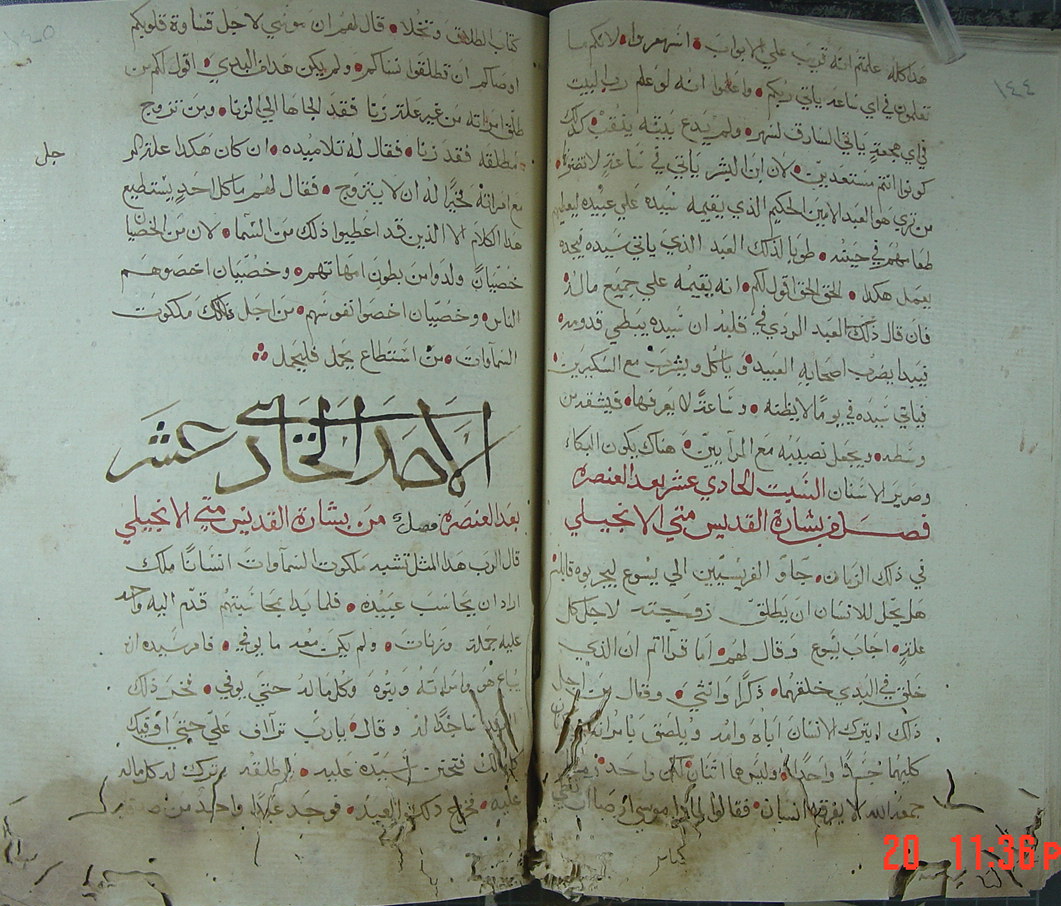 ١٤٤
هذا كله علمتم انه قريب علي الابواب • اسهروا • لانكم ما
تعلمون في اي ساعة ياتي ربكم • واعلموا انه لو علم رب البيت
في اي هجعةٍ ياتي السارق لسهر • ولم يدع بيته ينقب • كذلك
كونوا انتم مستعدين • لان ابن البشر ياتي في ساعةٍ لا تظنوا •
من تري هو العبد الامين الحكيم الذي يقيمه سيده علي عبيده ليعطيهم
طعامهم في حينه • طوبا لذلك العبد الذي ياتي سيده فيجده
يعمل هكذا • الحق الحق اقول لكم • انه يقيمه علي جميع ماله
فان قال ذلك العبد الردي في قلبه ان سيده يبطي قدومه •
فيبدا يضرب اصحابه العبيد • وياكل ويشرب مع السكيرين •
فياتي سيده في يومٍ لا يظنه • وساعةً لا يعرفها • فيشقه من
وسطه • ويجعل نصيبه مع المرآيين • هناك يكون البكاء
وصرير الاسنان السبت الحادي عشر بعد العنصره
فصل من بشارة القديس متي الانجيلي
في ذلك الزمان • جاؤ الفريسيين الي يسوع ليجربوه قايلين
هل يحل للانسان ان يطلق زوجته لاجل كل
علةٍ • اجاب يسوع وقال لهم • اما قرأتم ان الذي
خلق في البدي خلقهما • ذكرًا وانثي • وقال من اجل
ذلك يترك الانسان اباه وامه ويلصق بامراته
كليهما جسدًا واحدًا • وليس هما اثنان لكن واحد
جمعه الله لا يفرقه انسان • فقالوا له موسي اوصا ان
١٤٥
كتاب الطلاق وتخلا • قال لهم ان موسي لاجل قساوة قلوبكم
اوصاكم ان تطلقوا نساكم • ولم يكن هذا في البدي • اقول لكم من
طلق امراته من غير علة زنا فقد الجاها الي الزنا • ومن تزوج
مطلقه فقد زنا • فقال له تلاميذه • ان كان هكذا علة الرجل
مع امراته فخيرًا له ان لا يتزوج • فقال لهم ما كل احدٍ يستطيع
هذا الكلام الا الذين قد اعطيوا ذلك من السما • لان من الخصيان
خصيان ولدوا من بطون امهاتهم • وخصيان اخصوهم
الناس • وخصيان اخصوا نفوسهم • من اجل ملكوت
السماوات • من استطاع يحمل فليحمل
الاحد الحادي عشر
بعد العنصره فصل من بشارة القديس متي الانجيلي
قال الرب هذا المثل تشبه ملكوت السماوات انسانًا ملك
اراد ان يحاسب عبيده • فلما بدا بمحاسبتهم قدم اليه واحد
عليه جملة وزنات • ولم يكن معه ما يوفي • فامر سيده ان
يباع هو وامراته وبنوه وكل ماله حتي يوفي • فخر ذلك
العبد ساجدًا له وقال • يا رب ترآاف علي حتي اوفيك
فتحنن سيده عليه • واطلقه وترك له كل ماله
عليه • فخرج ذلك العبد • فوجد عبدًا واحدًا من
20 11:36 P